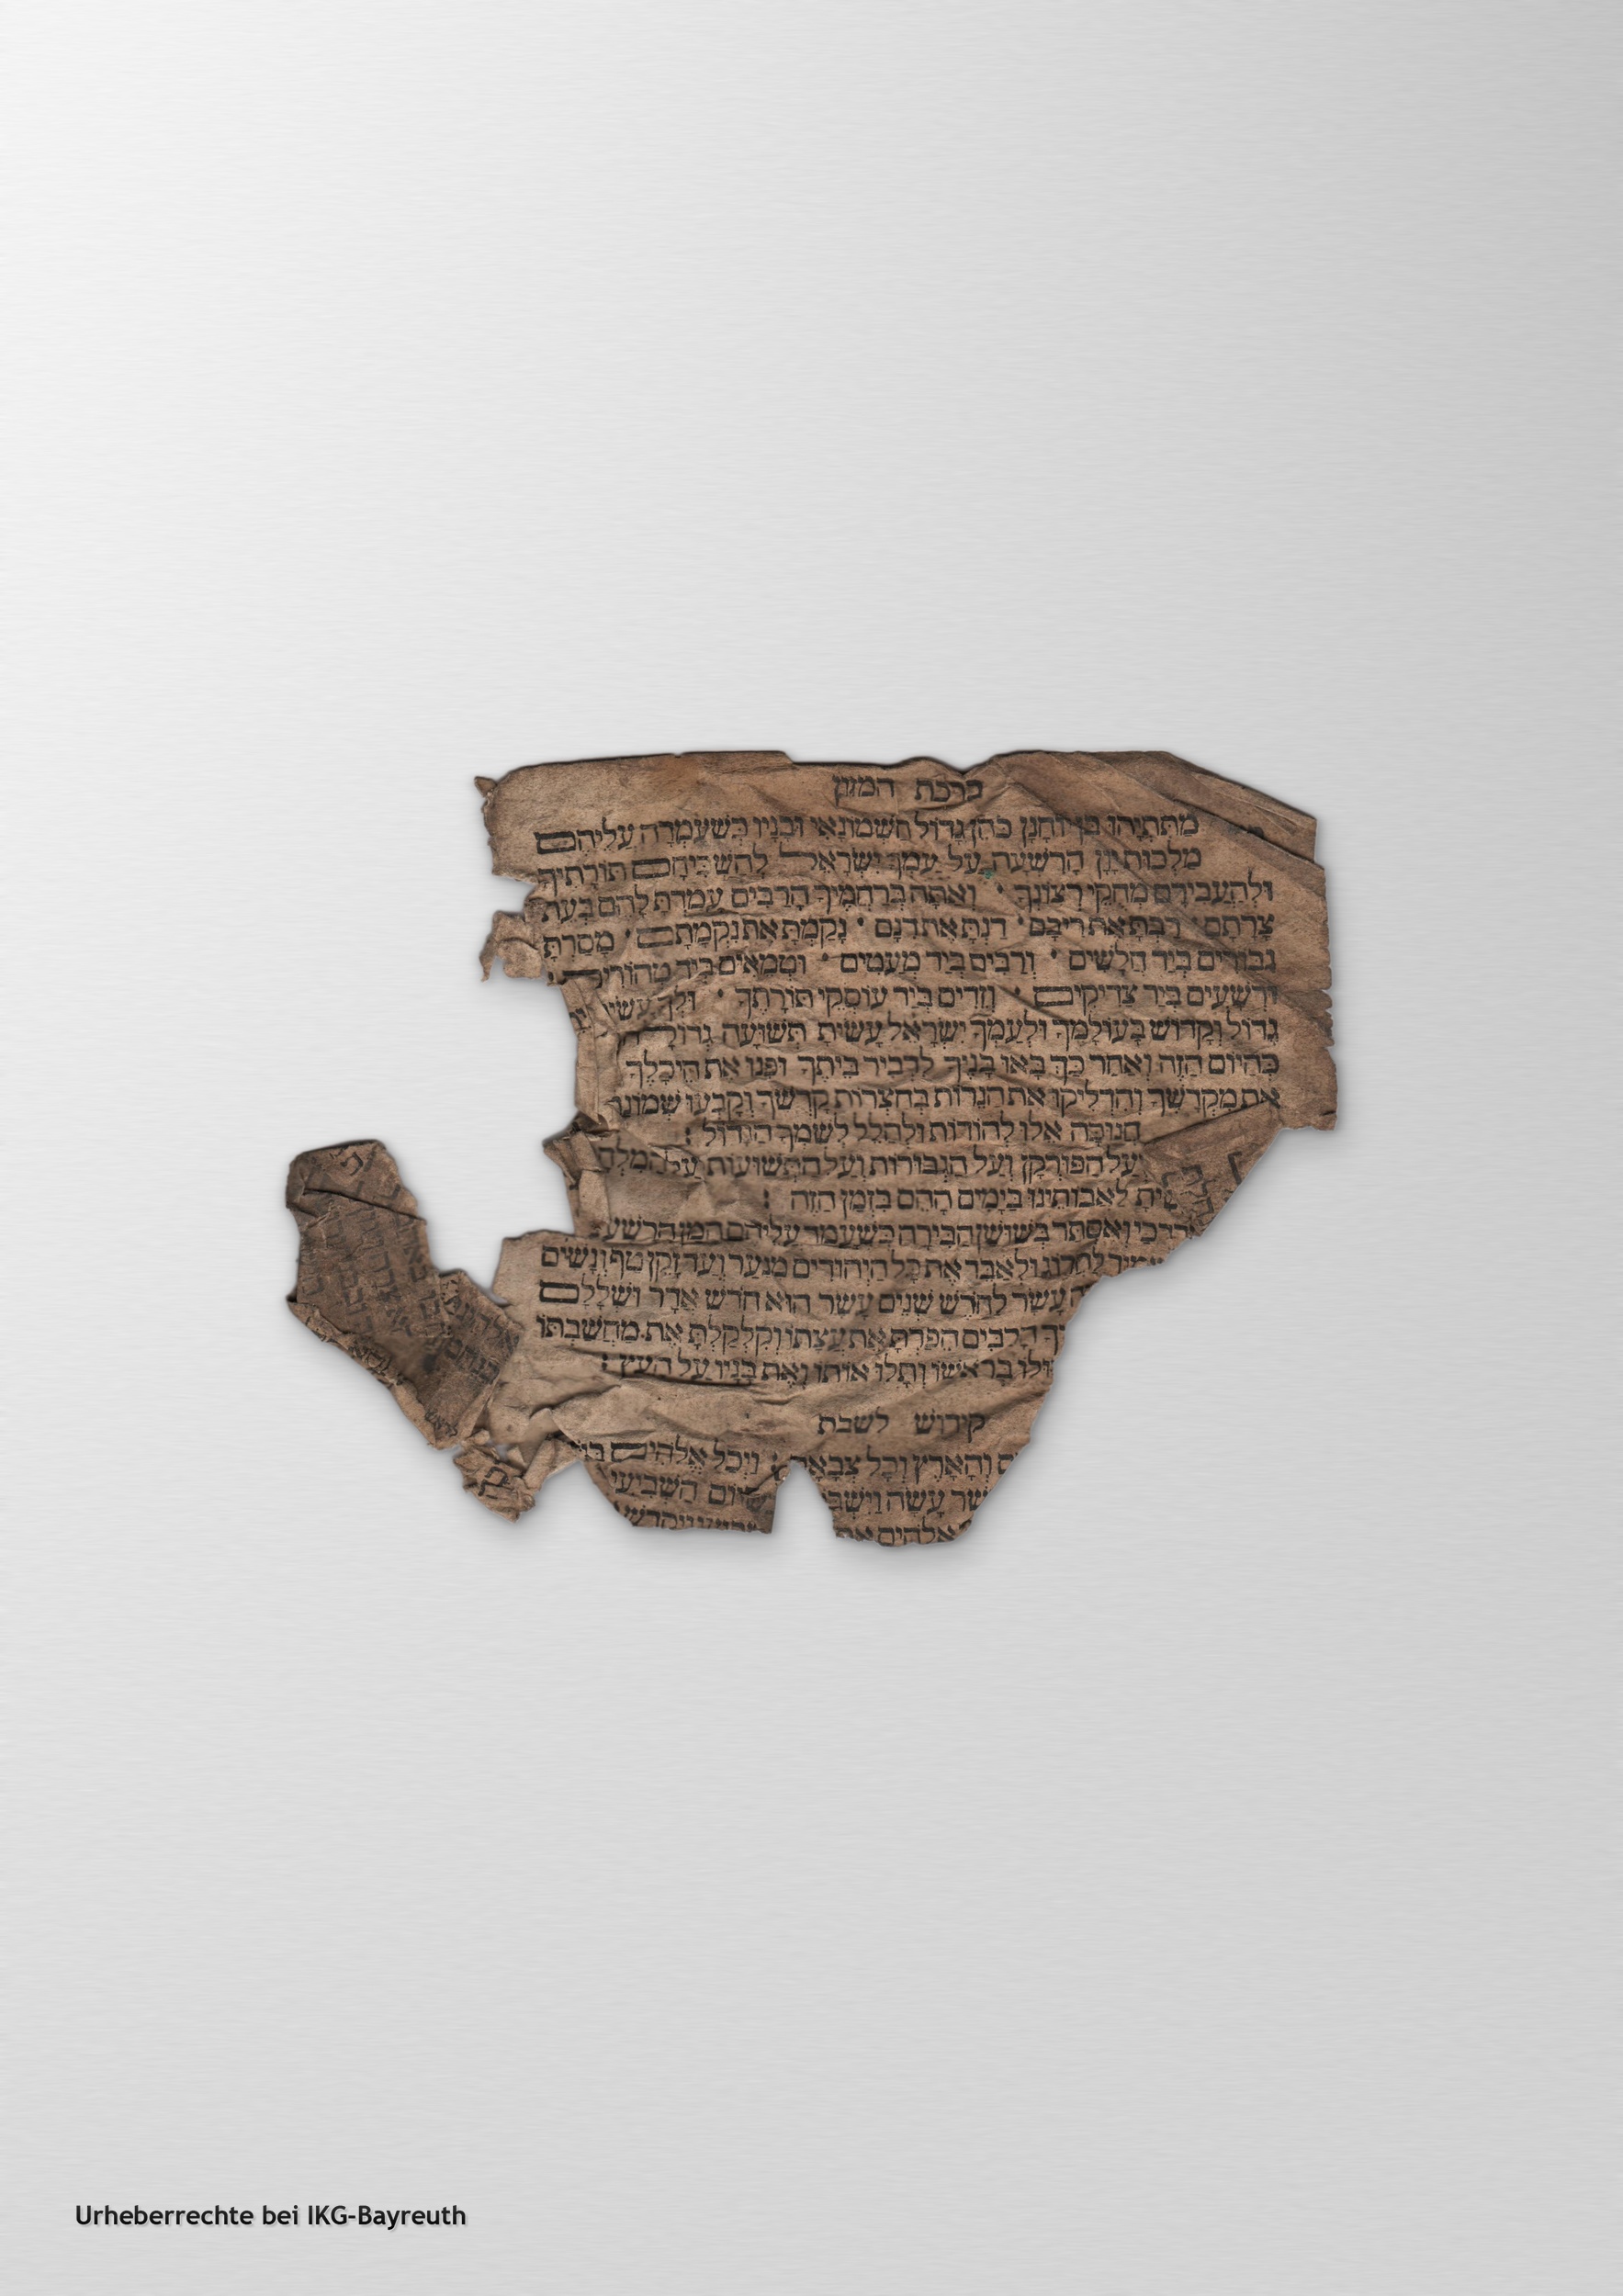 ברכת המזון
מַתִּתְיָהוּ בֶּן יוֹחָנָן כֹּהֵן גָּדוֹל חַשְׁמוֹנָאִי וּבָנָיו כְּשֶׁעָמְדָה עֲלֵיהֶם
מַלְכוּת יָוָן הָרְשָׁעָה עַל עַמְּךָ יִשְׂרָאֵל לְהַשְׁכִּיחָם תּוֹרָתֶיךָ
וּלְהַעֲבִירָם מֵחֻקֵּי רְצוֹנֶךָ · וְאַתָּה בְּרַחֲמֶיךָ הָרַבִּים עָמַדְתָּ לָהֶם בְּעֵת
צָרָתָם · רַבְתָּ אֶת רִיבָם · דַּנְתָּ אֶת דִּנָם · נָקַמְתָּ אֶת נִקְמָתָם · מָסַרְתָּ
גִבּוֹרִים בְּיַד חַלָּשִׁים · וְרַבִּים בְּיַד מְעַטִּים · וּטְמֵאִים בְּיַד טְהוֹרִים
וּרְשָׁעִים בְּיַד צַדִּיקִים · וְזֵדִים בְּיַד עוֹסְקֵי תּוֹרָתֶךָ · וּלְךָ עָשִׂיתָ
גָּדוֹל וְקָדוֹשׁ בְּעוֹלָמֶךָ וּלְעַמְּךָ יִשְׂרָאֵל עָשִׂיתָ תְּשׁוּעָה גְדוֹלָה
כְּהַיּוֹם הַזֶּה וְאַחַר כַּךְ בָּאוּ בָנֶיךָ לִדְבִיר בֵּיתֶךָ וּפִנּוּ אֶת הֵיכָלֶךָ
אֶת מִקְדָּשֶׁךָ וְהִדְלִיקוּ אֶת הַנֵּרוֹת בְּחַצְרוֹת קָדְשֶׁךָ וְקָבְעוּ שְׁמוֹנַ
חֲנוּכָּה אֵלּוּ לְהוֹדוֹת וּלְהַלֵּל לְשִׁמְךָ הַגָּדוֹל :
וְעַל הַפּוּרְקָן וְעַל הַגְּבוּרוֹת וְעַל הַתְּשׁוּעוֹת עַל הַמִּלְחָ
שִׂיתָ לַאֲבוֹתֵינוּ בַּיָּמִים הָהֵם בִּזְמַן הַזֶּה :
רְדְּכַי וְאֶסְתֵּר בְּשׁוּשַׁן הַבִּירָה כְּשֶׁעָמַד עֲלֵיהֶם הָמָן הָרָשָׁע
מִיד לַהֲרוֹג וּלְאַבֵּד אֶת כָּל הַיְּהוּדִים מִנַּעַר וְעַד זָקֵן טַף וְנָשִׁים
עָשָׂר לְחֹדֶשׁ שְׁנֵים עָשָׂר הוּא חֹדֶשׁ אֲדָר וּשְׁלָלָם
ךָ הָרַבִּים הֵפַרְתָּ אֶת עֲצָתוֹ וְקִלְקַלְתָּ אֶת מַחֲשַׁבְתּוֹ
מוּלוֹ בְּרֹאשׁוֹ וְתָלוּ אוֹתוֹ וְאֶת בָּנָיו עַל הָעֵץ :
קידוש לשבת
ם וְהָאָרֶץ וְכָל צְבָאָם : וַיְכַל אֱלֹהִים בַּיּ
שֶׁר עָשָׂה וַיִּשְׁבּ יוֹם הַשְּׁבִיעִי
אֱלֹהִים אֶת
Urheberrechte bei IKG-Bayreuth